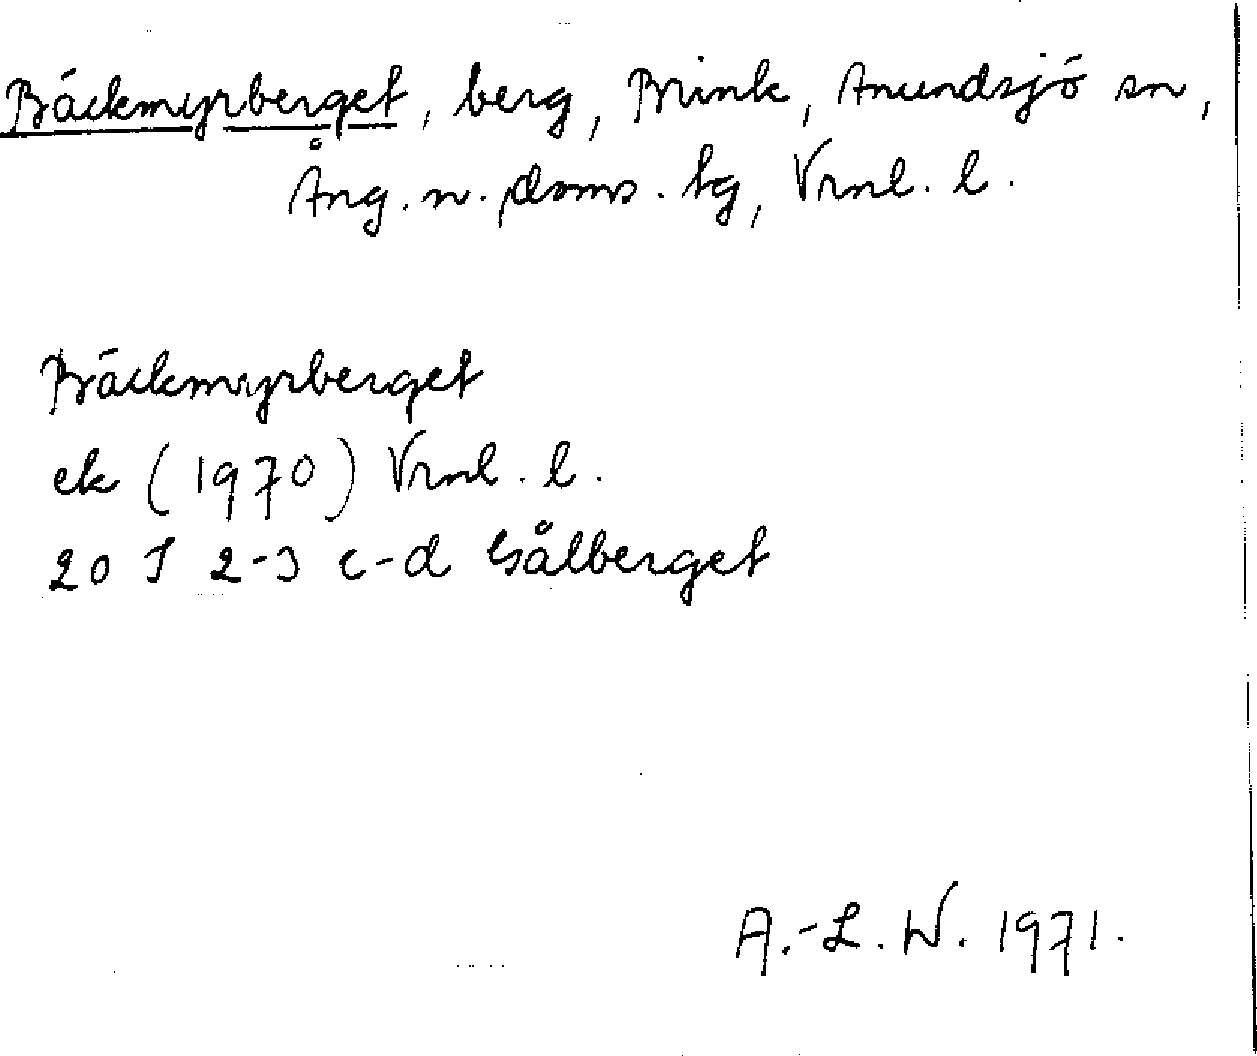 Bäckmyrberget, berg, Brink, Anundsjö sn,
Ång. n. doms. tg, Vrnl. l.
Bäckmyrberget
ek (1970) Vrnl. l.
20 J 2-3 c-d Gålberget
A.-L. W. 1971.